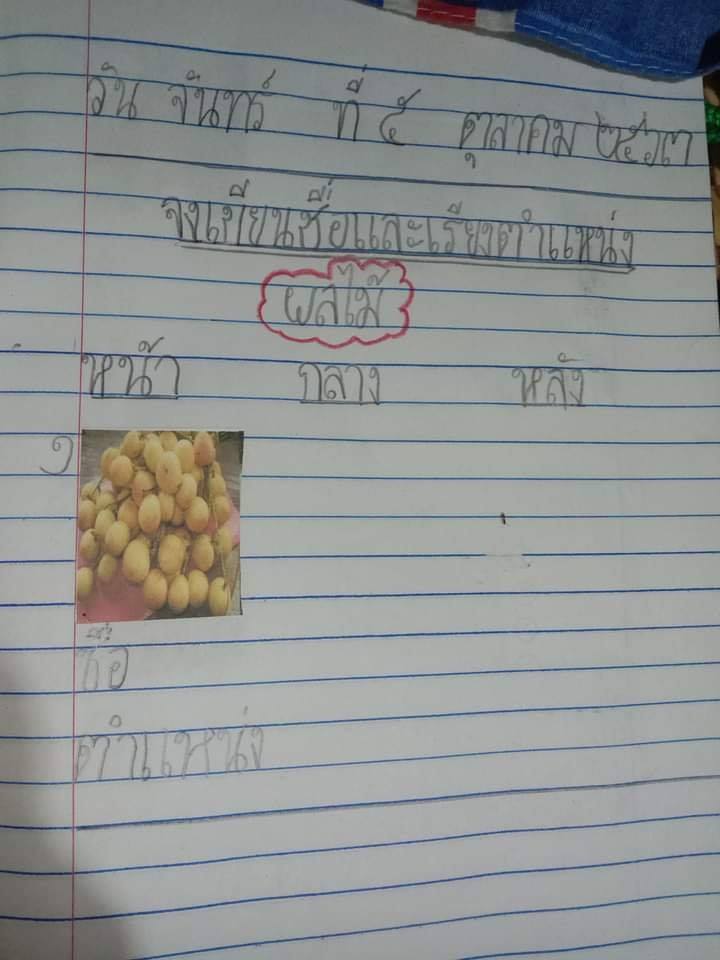 วัน จันทร์ ที่ ๕ ตุลาคม ๒๕๖๓
จงเขียนชื่อและเรียงตำแหน่ง
ผลไม้
หน้า กลาง หลัง
๑
ชื่อ
ตำแหน่ง